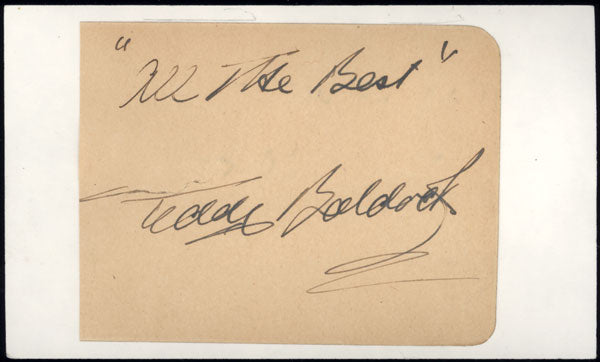 "All The Best"
Teddy Baldock